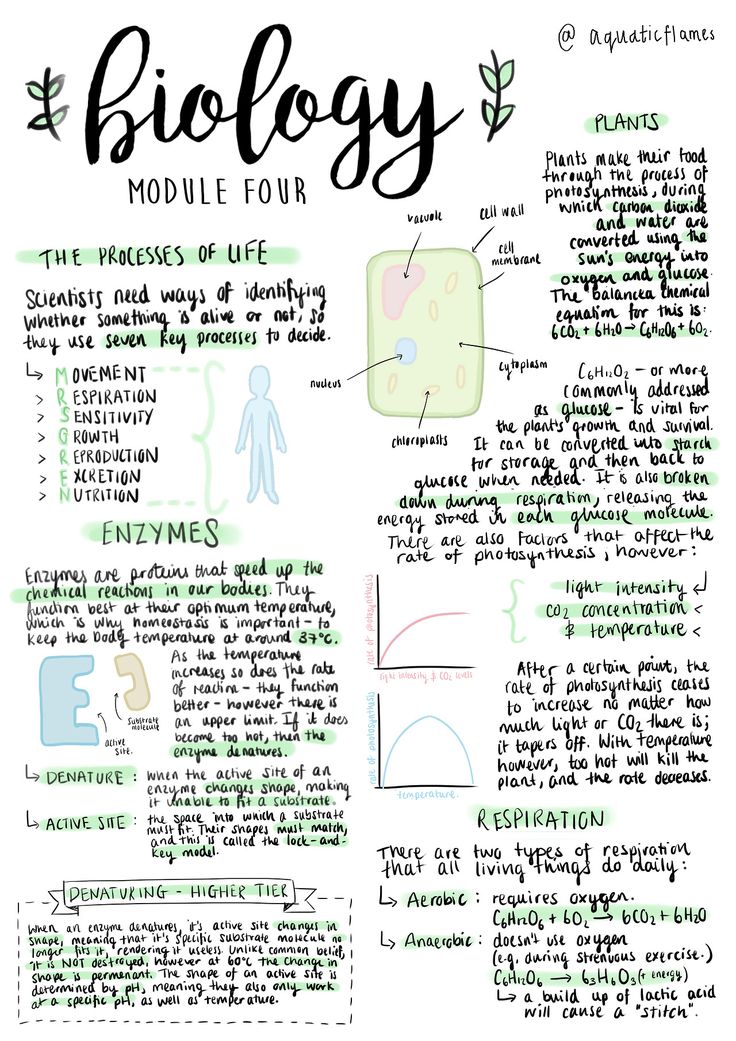 @ aquaticflames
biology
MODULE FOUR
THE PROCESSES OF LIFE
Scientists need ways of identifying
whether something is alive or not, so
they use seven key processes to decide.
↳ MOVEMENT
> RESPIRATION
> SENSITIVITY
> GROWTH
> REPRODUCTION
> EXCRETION
> NUTRITION
ENZYMES
Enzymes are proteins that speed up the
chemical reactions in our bodies. They
function best at their optimum temperature,
which is why homeostasis is important - to
keep the body temperature at around 37°C.
As the temperature
increases so does the rate
of reaction - they function
better - however there is
an upper limit. If it does
become too hot, then the
enzyme denatures.
substrate
molecule
active
site.
↳ DENATURE : when the active site of an
enzyme changes shape, making
it unable to fit a substrate.
↳ ACTIVE SITE : the space into which a substrate
must fit. Their shapes must match,
and this is called the lock-and-
key model.
DENATURING - HIGHER TIER
When an enzyme denatures, it's active site changes in
shape, meaning that it's specific substrate molecule no
longer fits it, rendering it useless. Unlike common belief,
it is NOT destroyed, however at 60°C the change in
shape is permenant. The shape of an active site is
determined by pH, meaning they also only work
at a specific pH, as well as temperature.
vacuole
cell wall
cell
membrane
cytoplasm
nucleus
chloroplasts
PLANTS
Plants make their food
through the process of
photosynthesis, during
which carbon dioxide
and water are
converted using the
sun's energy into
oxygen and glucose.
The balanced chemical
equation for this is:
6CO2 + 6H2O → C6H12O6 + 6O2.
C6H12O2 - or more
commonly addressed
as glucose - is vital for
the plant's growth and survival.
It can be converted into starch
for storage and then back to
glucose when needed. It is also broken
down during respiration, releasing the
energy stored in each glucose molecule.
There are also factors that affect the
rate of photosynthesis, however:
light intensity ↲
CO2 concentration <
& temperature <
rate of photosynthesis
light intensity & CO2 levels
rate of photosynthesis
temperature.
After a certain point, the
rate of photosynthesis ceases
to increase no matter how
much light or CO2 there is;
it tapers off. With temperature
however, too hot will kill the
plant, and the rate deceases.
RESPIRATION
There are two types of respiration
that all living things do daily:
↳ Aerobic : requires oxygen.
C6H12O6 + 6O2 → 6CO2 + 6H2O
↳ Anaerobic : doesn't use oxygen
(e.g. during strenuous exercise.)
C6H12O6 → 63H6O3 (+ energy)
↳ a build up of lactic acid
will cause a "stitch".